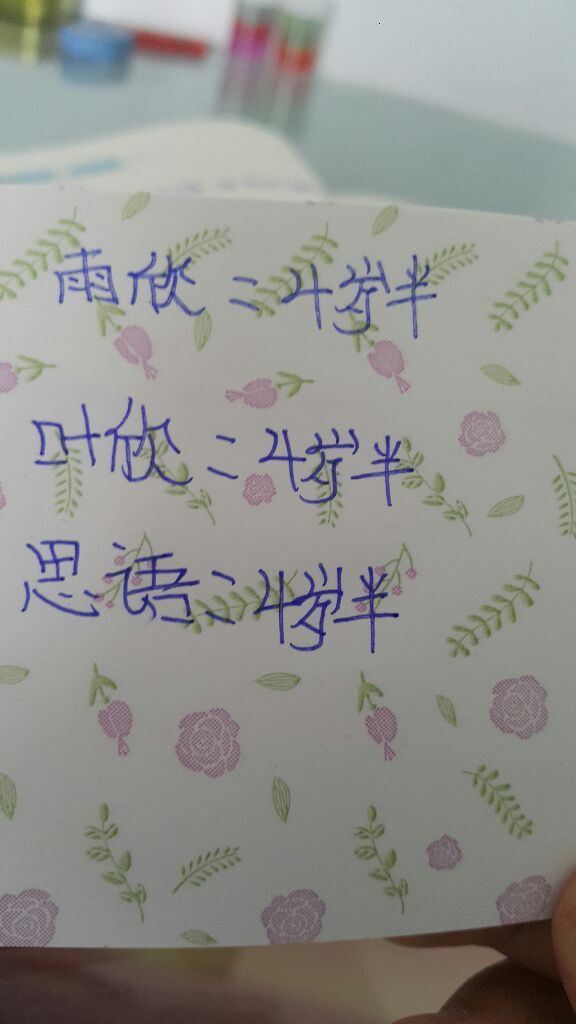 雨欣=4岁半
叶欣=4岁半
思语=4岁半